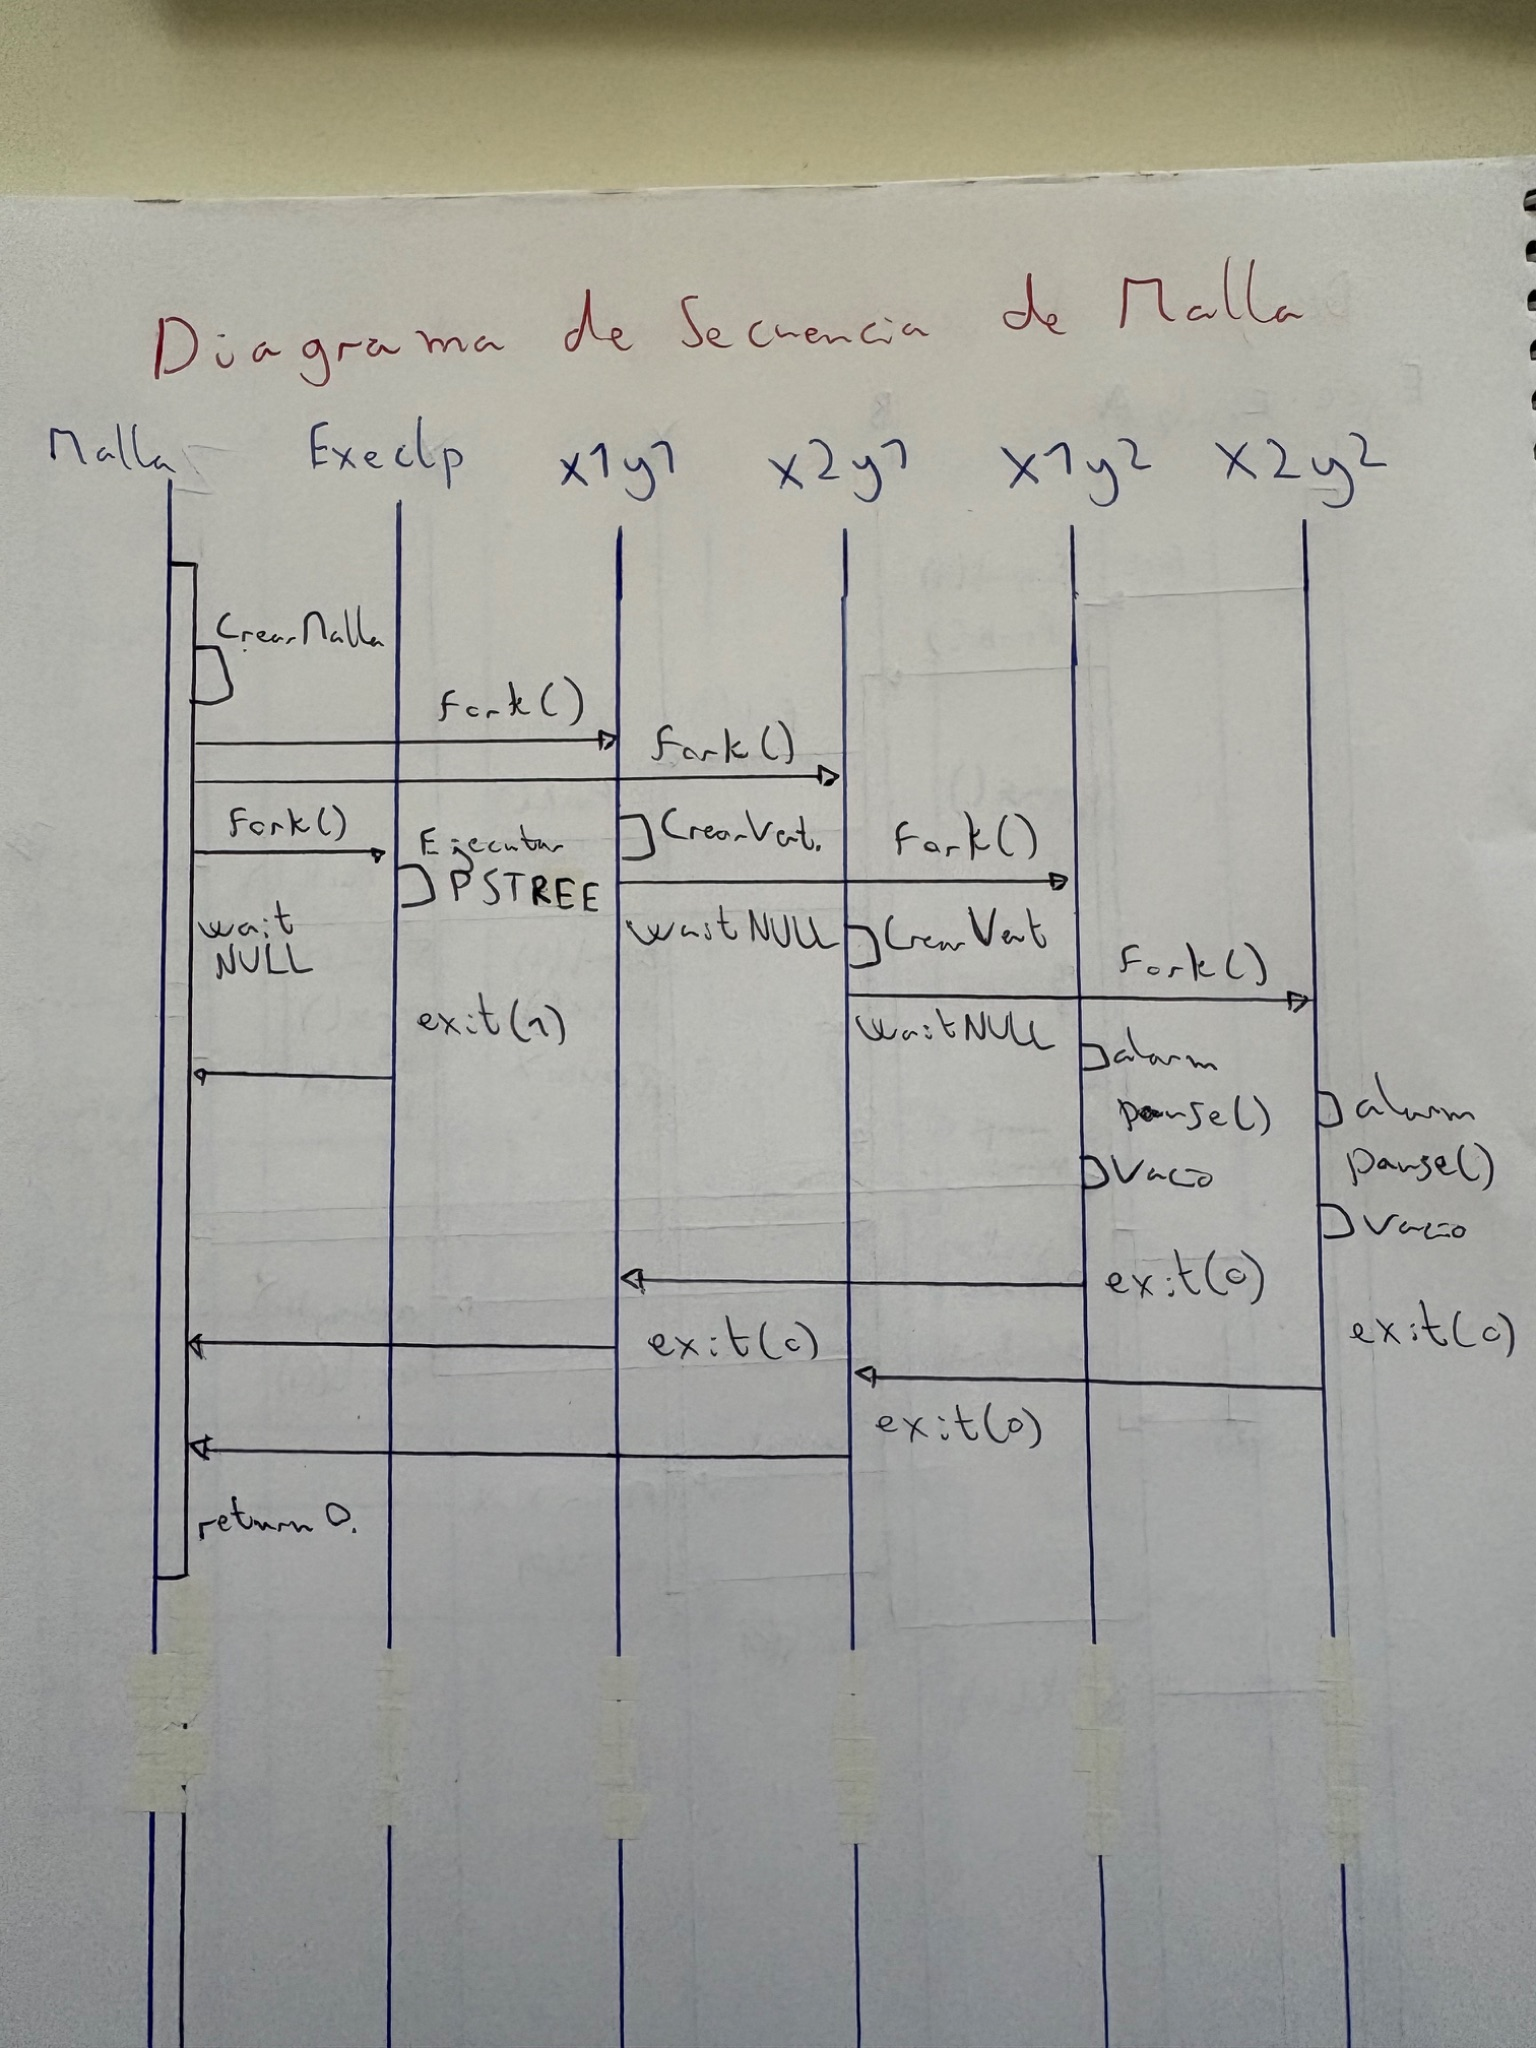 Diagrama de Secuencia de Malla
Malla Execlp x1y1 x2y1 x1y2 x2y2
CrearMalla
fork()
fork()
fork()
Ejecutar
PSTREE
CrearVert.
fork()
wait
NULL
waitNULL
CrearVert
fork()
exit(1)
waitNULL
alarm
pause()
alarm
pause()
Vacio
Vacio
exit(0)
exit(0)
exit(0)
exit(0)
return 0.